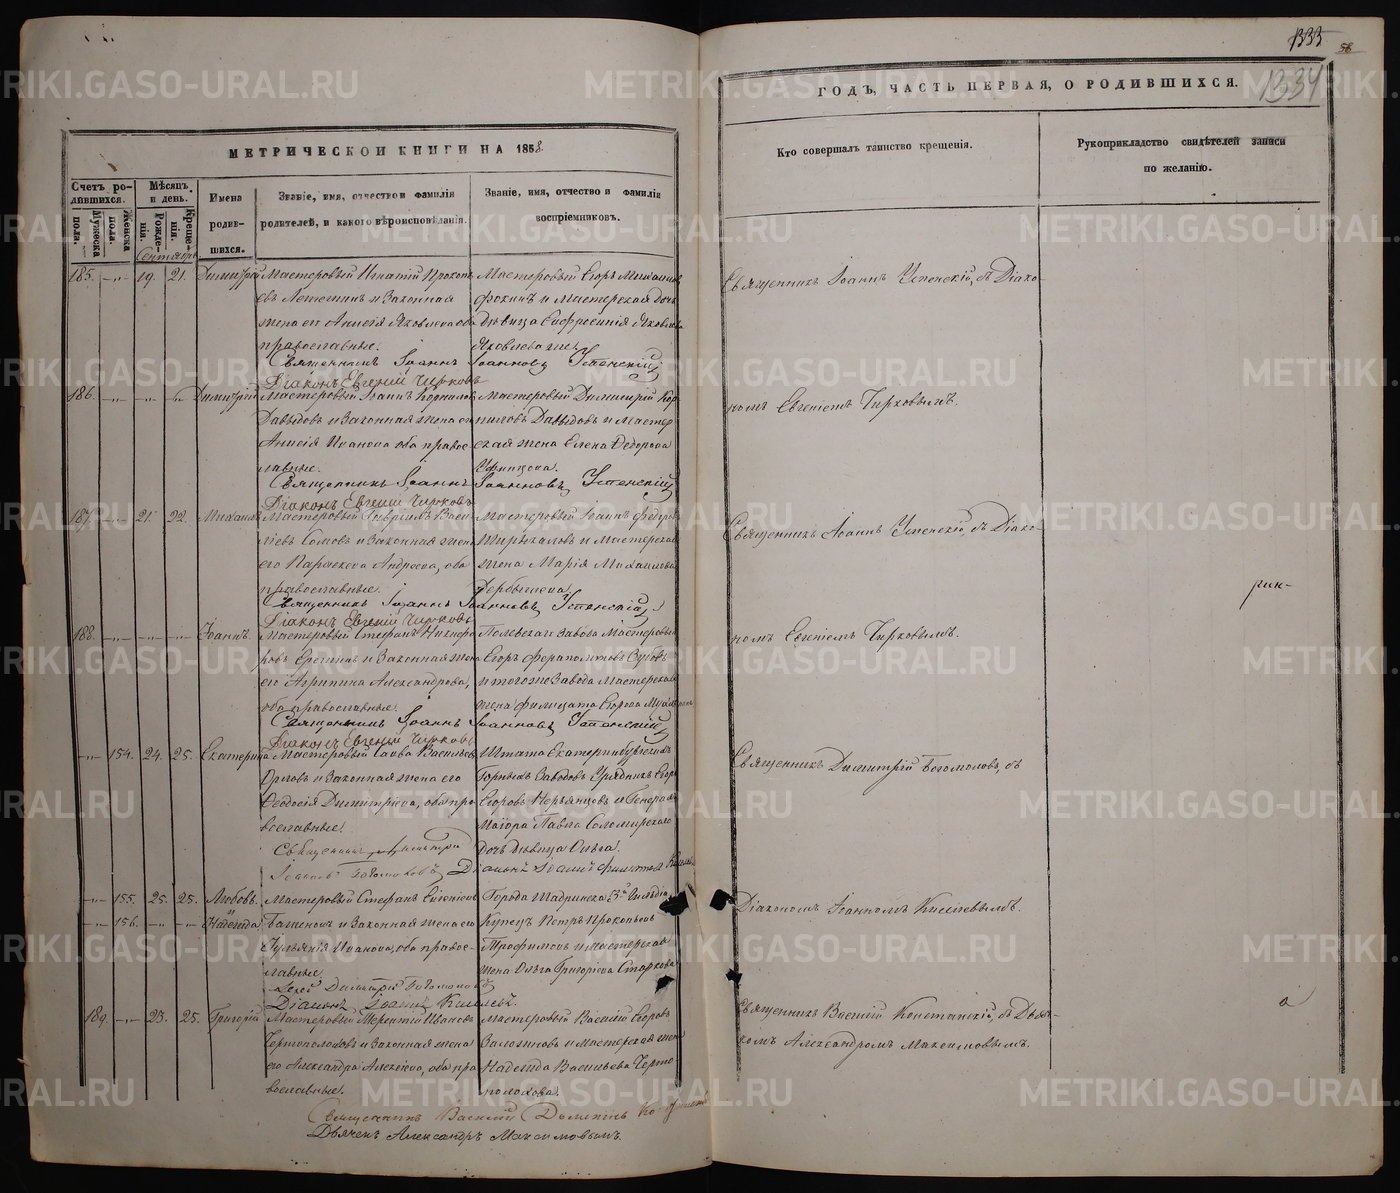 МЕТРИЧЕСКОЙ КНИГИ НА 1858
Счетъ ро-
дившихся.
Мужеска пола.
Женска пола.
Мѣсяцъ
и день.
Рожде-
нія.
Креще-
нія.
Сентябрь
Имена
родив-
шихся.
Званіе, имя, отчество и фамилія
родителей, и какого вѣроисповѣданія.
Званіе, имя, отчество и фамилія
воспріемниковъ.
185. 19. 21. Димитрій
Мастеровый Игнатій Прокопь
евъ Летешинъ и Законная
жена его Анисія Яковлева оба
православные.
Мастеровый Егоръ Михаиловъ
Фокинъ и Мастерская дочь
дѣвица Евфросинія Яковлева
Священникъ Іоаннъ Іоанновъ Успенскій
Діаконъ Евгеній Чирковъ
186. Димитрій
Мастеровый Іоаннъ Корниловъ
Давыдовъ и Законная жена его
Анисія Иванова оба право-
славные.
Мастеровый Димитрій Кор-
ниловъ Давыдовъ и мастер
ская жена Елена Федорова
Священникъ Іоаннъ Іоанновъ Успенскій
Діаконъ Евгеній Чирковъ
187. 21. 22. Михаилъ
Мастеровый Гавріилъ Васи-
ліевъ Сомовъ и Законная жена
его Параскева Андреева, оба
православные.
Мастеровый Іоаннъ Федоровъ
и Мастерская
жена Марія Михаилова
Дербышева.
Священникъ Іоаннъ Іоанновъ Успенскій
Діаконъ Евгеній Чирковъ
188. Іоаннъ.
Мастеровый Стефанъ Никифо
ровъ Еретинъ и Законная жена
его Агрипина Александрова,
оба православные.
Полевскаго Завода Мастеровый
Егоръ Ферапонтовъ Зубовъ
и того же Завода Мастерская
жена Филицата Егорова
Священникъ Іоаннъ Іоанновъ Успенскій
Діаконъ Евгеній Чирковъ
154. 24. 25. Екатерина
Мастеровый Савва Васильевъ
Орловъ и Законная жена его
Феодосія Димитріева, оба пра
вославные.
Штата Екатеринбургскихъ
Горныхъ Заводовъ Урядникъ Егоръ
Егоровъ и Генералъ
Маіора Павла Соломирскаго
Дочь дѣвица Ольга.
Священникъ Димитрій
Богомоловъ Діаконъ Іоаннъ
155. 25. 25. Любовь.
156. и Надежда
Мастеровый Стефанъ Евгеніевъ
и Законная жена его
Іуліанія Иванова, оба право-
славные.
Города Шадринска 3й Гильдіи
Купецъ Петръ Прокопьевъ
Трофимовъ и мастерская
жена Ольга Григоріева Старкова
Іерей Димитрій Богомоловъ
Діаконъ Іоаннъ Киселевъ.
189. 23. 25. Григорій
Мастеровый Терентій Ивановъ
Чертополоховъ и Законная жена
его Александра Алексіева, оба пра
вославные.
Мастеровый Василій Егоровъ
и Мастерская жена
Надежда Васильева Черто-
полохова.
Священникъ Василій
Дьячекъ Александръ Максимовыхъ.
1333
58
1334
ГОДЪ, ЧАСТЬ ПЕРВАЯ, О РОДИВШИХСЯ.
Кто совершалъ таинство крещенія.
Рукоприкладство свидѣтелей записи
по желанію.
Священникъ Іоаннъ Успенскій, съ Діако-
номъ Евгеніемъ Чирковымъ.
Священникъ Іоаннъ Успенскій, съ Діако-
номъ Евгеніемъ Чирковымъ.
Священникъ Димитрій Богомоловъ, съ
Діакономъ Іоанномъ Киселевымъ.
Священникъ Василій Констанскій, съ Дьяч-
комъ Александромъ Максимовымъ.
METRIKI.GASO-URAL.RU